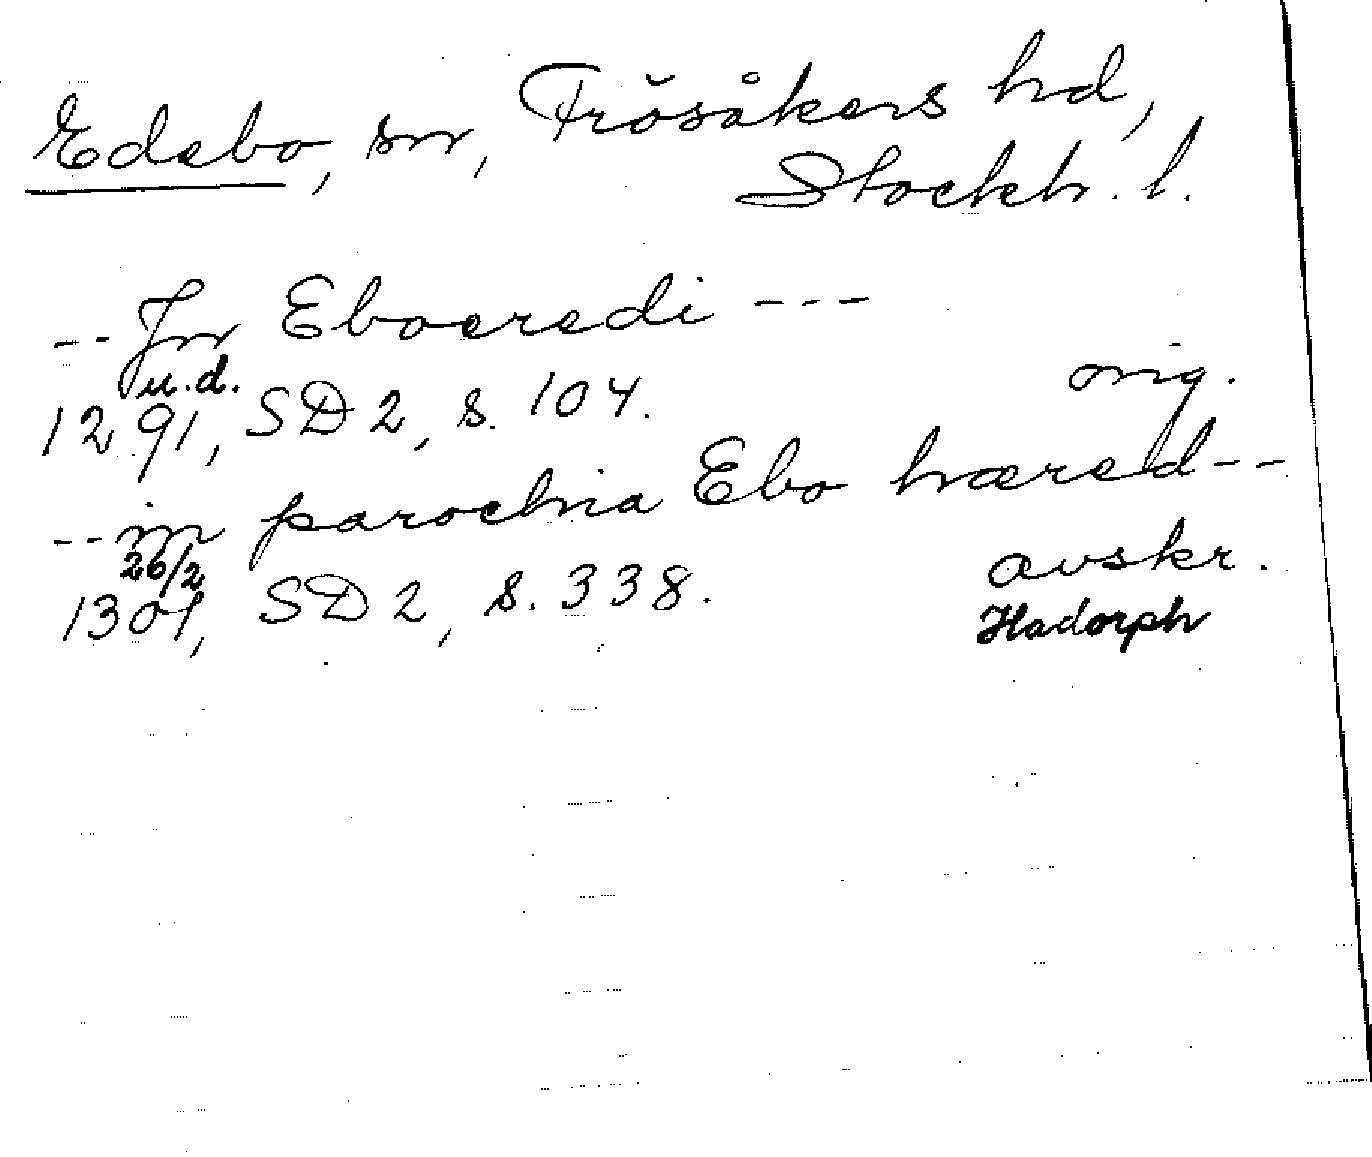 Edebo, sn, Frösåkers hd,
Stockh. l.
-- In Eboeredi ---
u.d.
1291, SD 2, s. 104. orig.
-- in parochia Ebo hæred --
26/2
1301, SD 2, s. 338. avskr.
Hadorph